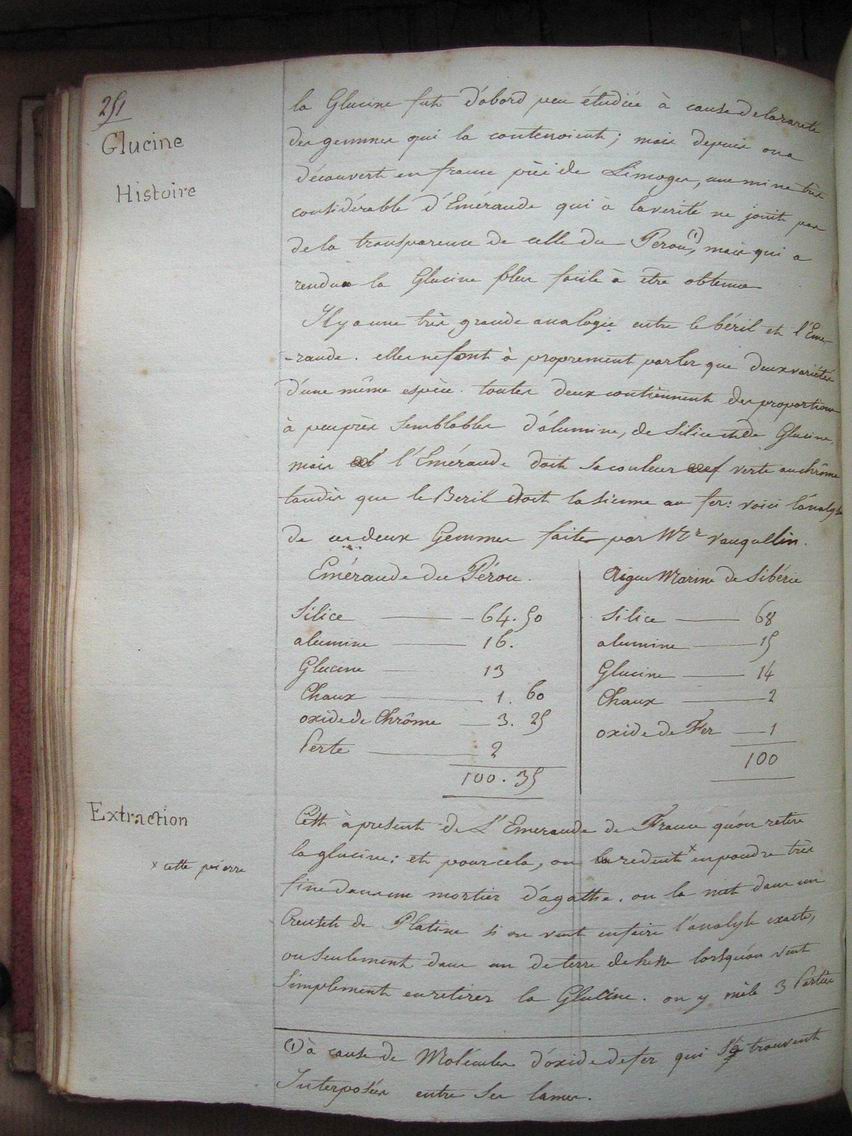 251
Glucine
Histoire
la Glucine fut d'abord peu étudiée à cause de la rareté
des gemmes qui la contenoient; mais depuis on a
découvert en france près de Limoges, une mine très
considérable d'Eméraude qui à la verité ne jouit pas
de la transparence de celle du Perou(1), mais qui a
rendu la Glucine plus facile à etre obtenue
Il y a une très grande analogie entre le béril et l'Eme-
-raude. elles ne font à proprement parler que deux variétés
d'une même espèce. toutes deux contiennent des proportions
à peu près semblables d'alumine, de silice et de Glucine,
mais l'Eméraude doit sa couleur verte au chrôme
tandis que le Beril doit la sienne au fer: voici l'analyse
de ces deux Gemmes faites par Mr. Vauquellin.
Eméraude du Pérou.
Silice — 64.50
alumine — 16.
Glucine — 13
Chaux — 1.60
oxide de Chrôme — 3.25
Perte — 2
100.35
Aigue Marine de Sibérie
Silice — 68
alumine — 15
Glucine — 14
Chaux — 2
oxide de Fer — 1
100
Extraction
C'est à présent de L'Emeraude de France qu'on retire
la glucine; et pour cela, on reduit x en poudre très
x cette pierre
fine dans un mortier d'agathe. on la met dans un
Creuset de Platine si on veut en faire l'analyse exacte,
ou seulement dans un de terre de hesse lorsqu'on veut
simplement en retirer la Glucine. on y mêle 3 Parties
(1) à cause de Molécules d'oxide de fer qui se trouvent
Interposées entre ses lames.